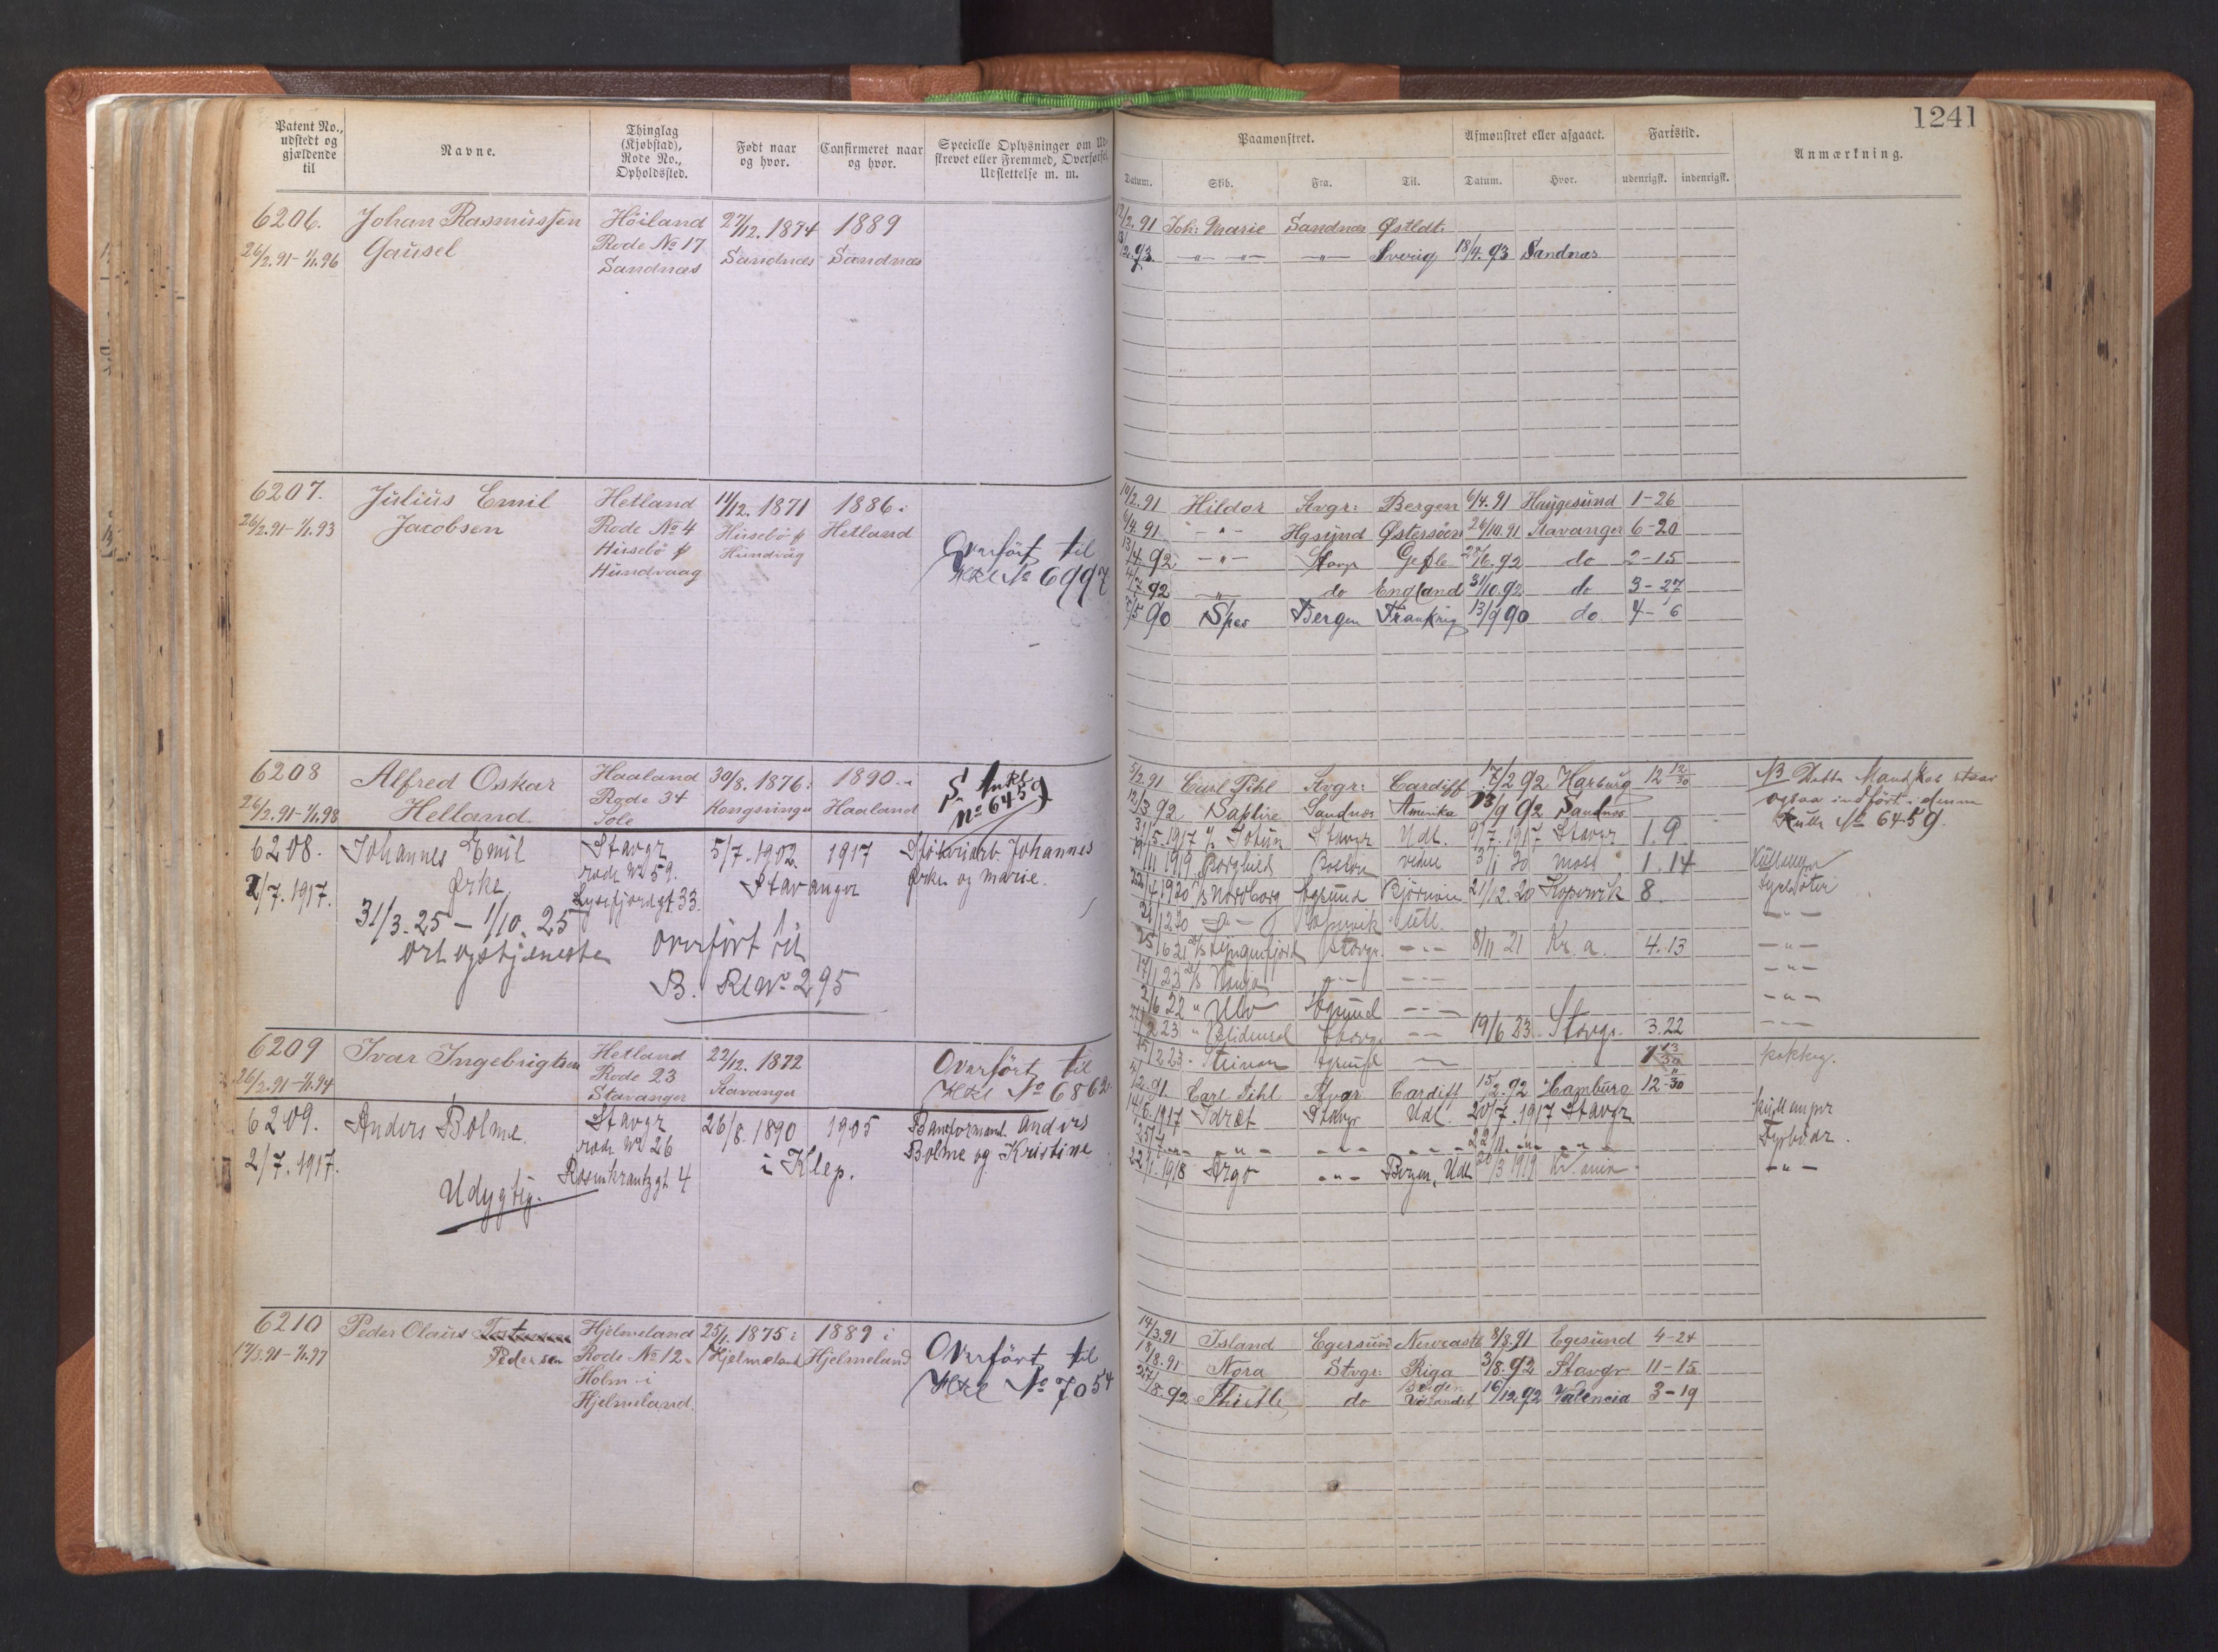 1241
Patent No., udstedt og gjældende til
Navne.
Thinglag (Kjøbstad), Rode No., Opholdssted.
Født naar og hvor.
Confirmeret naar og hvor.
Specielle Oplysninger om Ud-
skrevet eller Fremmed, Overførsel,
Udslettelse m. m.
Paamønstret.
Afmønstret eller afgaaet.
Fartstid.
Anmærkning.
Datum. Skib. Fra. Til. Datum. Hvor. udenrigsk. indenrigsk.
6206. Johan Rasmussen Höiland 27/12. 1874 1889
26/2.91-1/1.96 Gausel Rode No 17 Sandnæs Sandnæs
Sandnæs
12/2.91 Joh: Marie Sandnæs Østldt.
93 -"- -"- -"- Sverig 18/4.93 Sandnæs
6207. Julius Emil Hetland 11/12. 1871 1886 i
26/2.91-1/1.93 Jacobsen Rode No 4 Husebö p Hetland
Husebö p Hundvåg
Hundvaag
Overfört til
Htkl No 6997
10/2.91 Hildor Avgr: Bergen 6/4.91 Haugesund 1-26
6/4.91 -"- Hgsund Østersöen 26/10.91 Stavanger 6-20
13/4.92 -"- Stavgr Gefle 28/6.92 do 2-15
4/7.92 " do England 31/10.92 do 3-27
7/5 90 Spes Bergen Frankrig 13/9 90 do. 4-6
6208 Alfred Oskar Haaland 30/8. 1876: 1890.
26/2.91-1/1.98 Helland. Rode 34 Kongsvinger Haaland
Sole
No 6459
5/2.91 Carl Pihl Avgr: Cardiff 17/2 92 Harburg 12 12/30
12/3.92 Saphire Sandnæs Amerika 13/9 92 Sandnæs
NB Dette Mandskab staar
ogsaa indfört i denne
Rulle No 6459.
6208. Johannes Emil Stavgr 5/7.1902. 1917 Johannes
2/7.1917. Ørke rode No 59. Stavanger Ørke og Marie.
Lysefjordgt 33.
31/3.25 - 1/10.25
overfört til
B. Rl No 295
31/5.1917 Jotun Stavgr Udl. 9/7.1917 Stavgr 1.9
11/11 1919 Borghild Boston 3/1 20 Moss 1.14
22/4.1920 Nordborg Egersund 21/12.20 Kopervik 8.
21/12 20 -"- Kopervik Utl.
25/6 21 Lyngenfjord Stavgr. -"- 8/11 21 Kr. a. 4.13
-"-
2/6 22 Egersund -"-
-"-
2 23 19/6 23. Stavgr. 3.22
kokkeg.
6209 Ivar Ingebrigtsen Hetland 22/12. 1872
26/2.91-1/1.94 Rode 23 Stavanger
Stavanger
Overfört til
Htkl No 6862
5/2.91. Carl Pihl Avgr Cardiff 15/2.92 Hamburg 12-11/30
6209. Anders Bolme. Stavgr 26/8. 1890 1905 Anders
2/7.1917. rode No 26 i Klep. Bolme og Kristine
Rosenkrantzgt 4
Udygtig.
14/6.1917 Idræt Stavgr Udl. 20/7.1917 Stavgr Kullemper
Fyrböder.
22/1.1918 Argo -"- Bergen, Udl 1919 -"-
6210 Peder Olaus Hjelmeland 25/1. 1875 i 1889 i
17/3.91-1/1.97 Pedersen Rode No 12. Hjelmeland Hjelmeland
Holm i
Hjelmeland.
Overfört til
Htkl No 7054
14/3.91 Island Egersund Newcastle 8/8.91 Egesund 4-24
18/8.91 Nora Stvgr: Riga 3/8.92 Stavgr 11-15
27/8.92 Thistle do Bergen Udlandet 16/12.92 Valencia 3-19